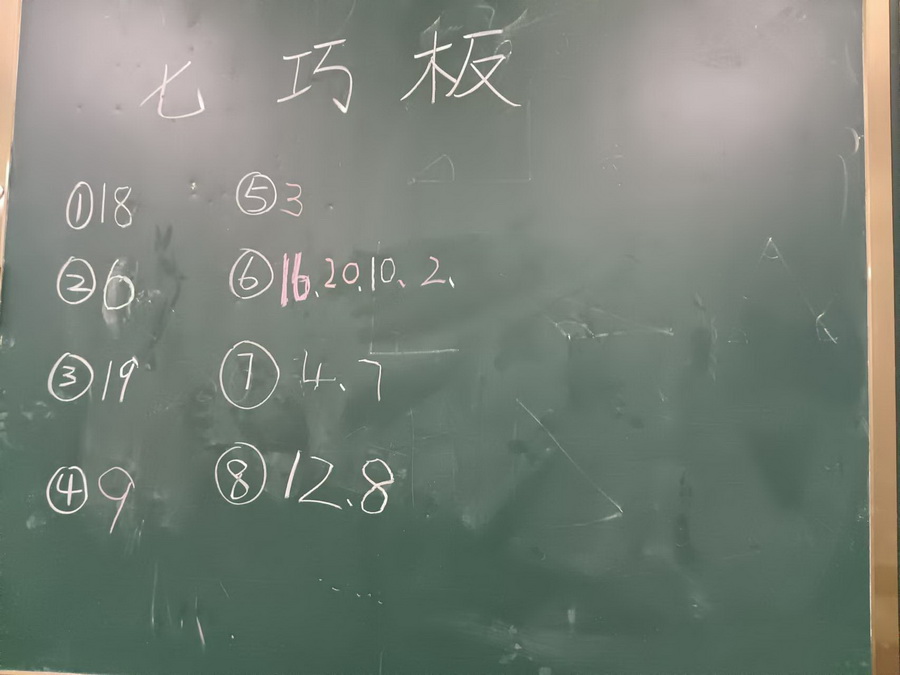 七巧板
①18
②6
③19
④9
⑤3
⑥16、20、10、2、
⑦4、7
⑧12、8